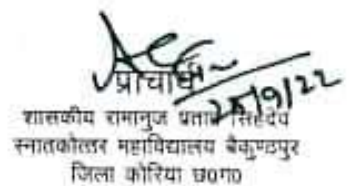 प्राचार्य
28/9/22
शासकीय रामानुज प्रताप सिंहदेव
स्नातकोत्तर महाविद्यालय बैकुण्ठपुर
जिला कोरिया छ०ग०